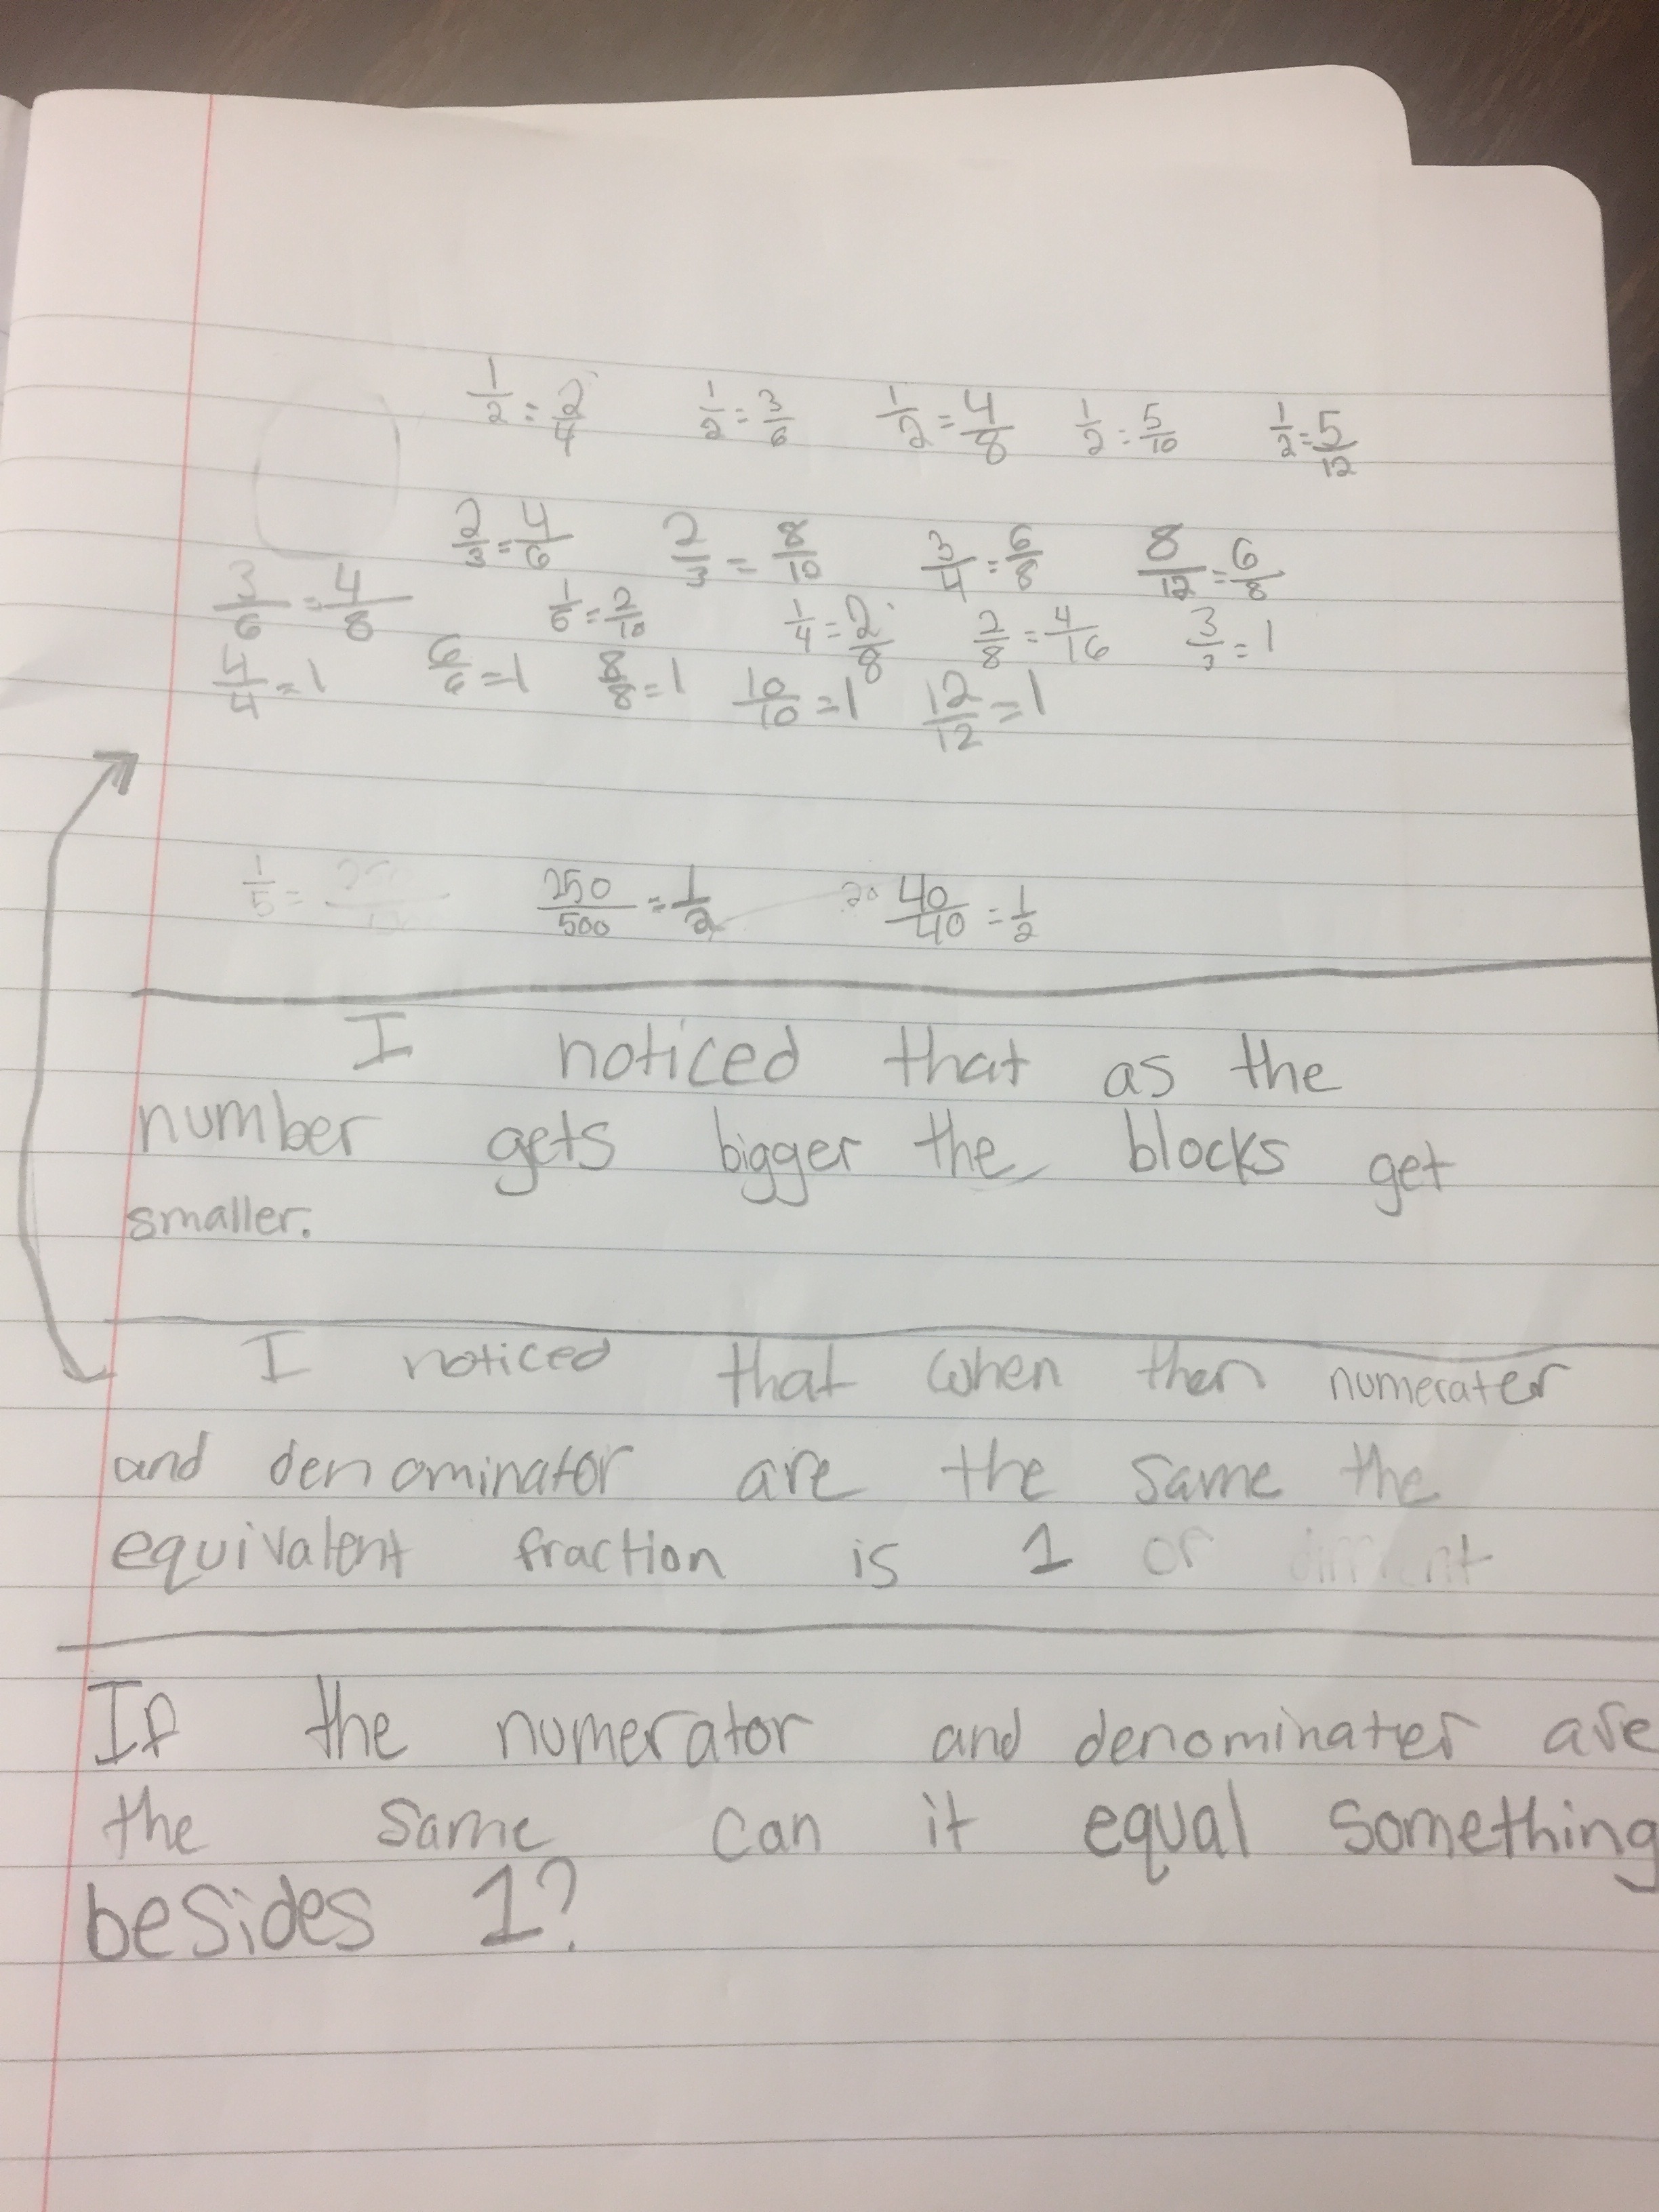 1/2 = 2/4 1/2 = 3/6 1/2 = 4/8 1/2 = 5/10 1/2 = 5/12
2/3 = 4/6 2/3 = 8/10 3/4 = 6/8 8/12 = 6/8
3/6 = 4/8 1/5 = 2/10 1/4 = 2/8 2/8 = 4/16 3/3 = 1
4/4 = 1 6/6 = 1 8/8 = 1 10/10 = 1 12/12 = 1
1/5 = 250/500 = 1/2 20 40/40 = 1/2
I noticed that as the
number gets bigger the blocks get
smaller.
I noticed that when then numerater
and denominator are the same the
equivalent fraction is 1 or
If the numerator and denominater are
the same can it equal something
besides 1?